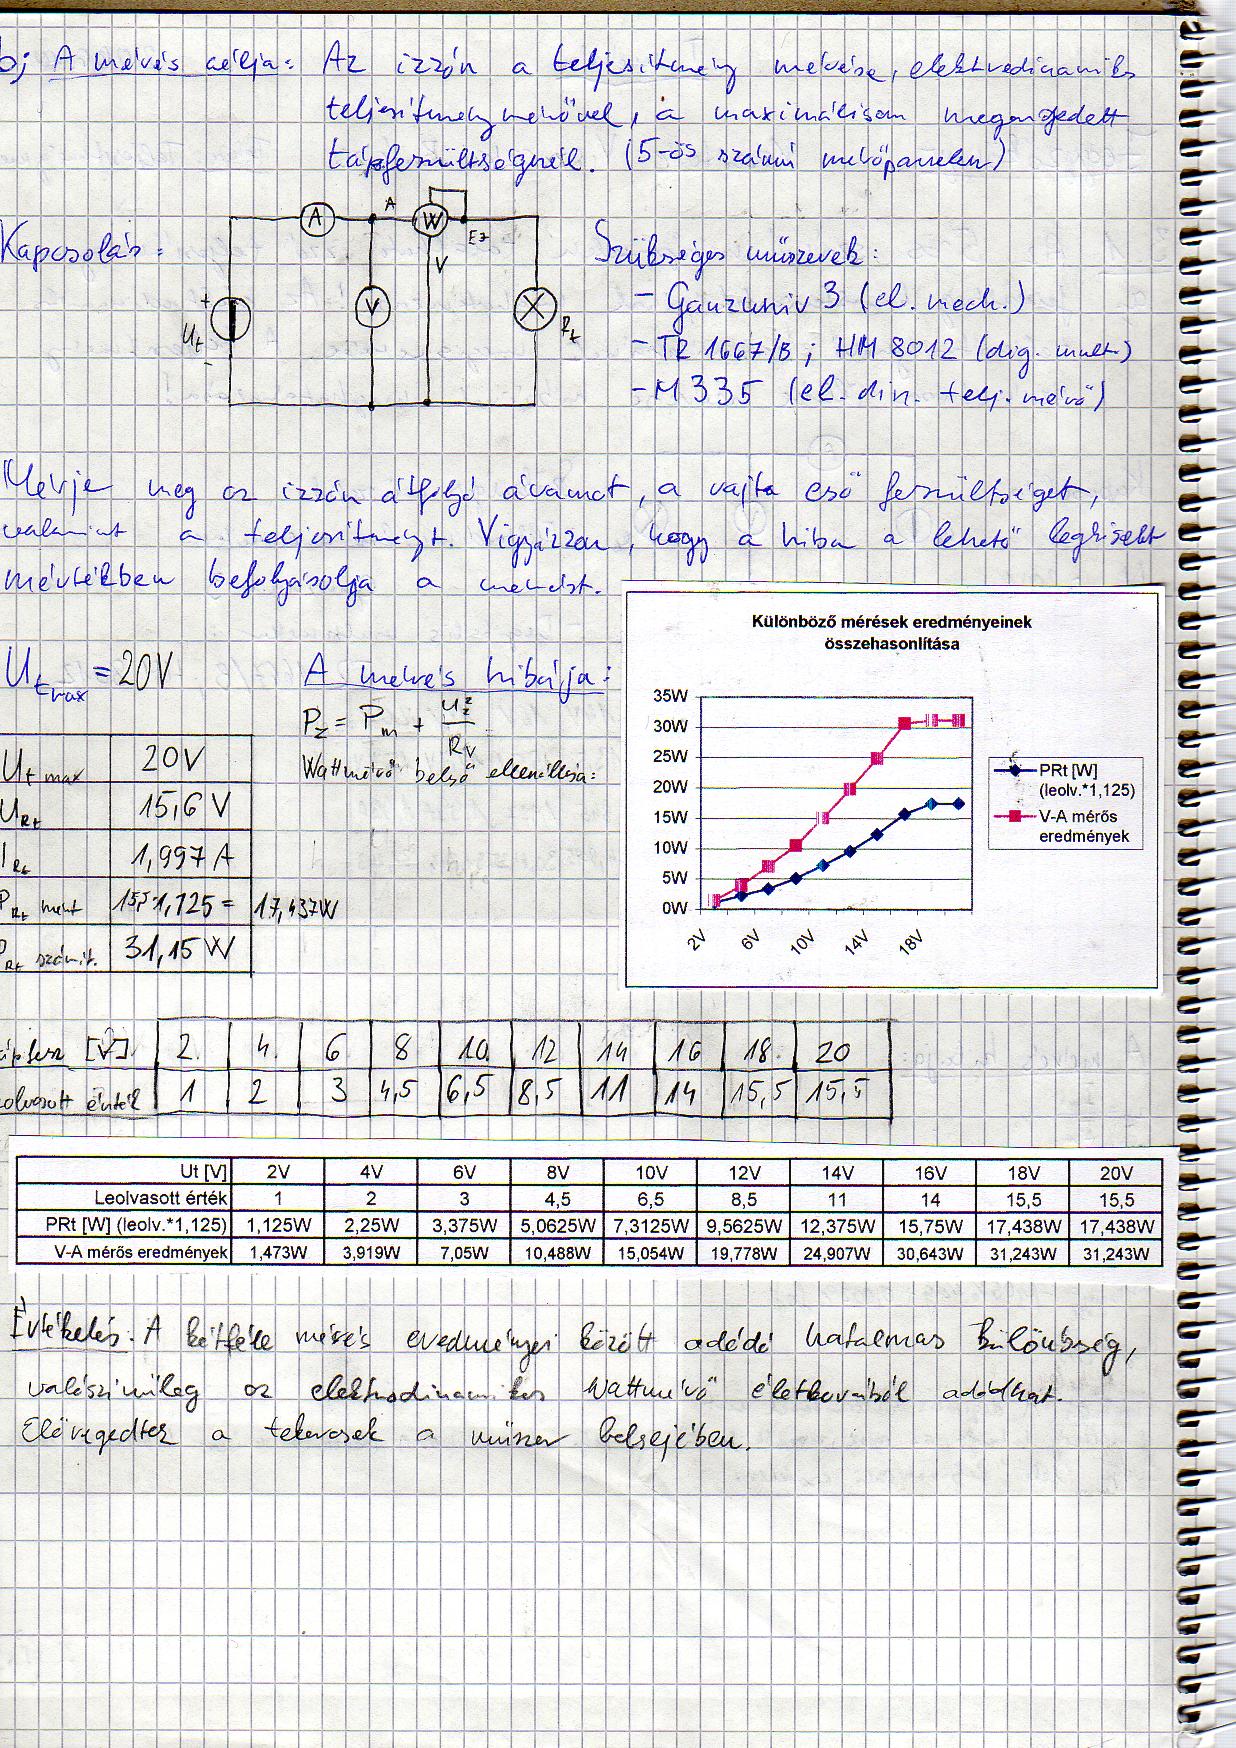 b; A mérés célja: Az izzón a teljesítmény mérése, elektrodinamikus
teljesítménymérővel, a maximálisan megengedett
tápfeszültségnél. (5-ös számú mérőpanelen)
Kapcsolás:
A
A
W
Ez
V
V
+
Ut
-
Rt
Szükséges műszerek:
- Ganzuniv 3 (el. mech.)
- TR 1667/B ; HM 8012 (dig. mult.)
- M 335 (el. din. telj. mérő)
Mérje meg az izzón átfolyó áramot, a rajta eső feszültséget,
valamint a teljesítményt. Vigyázzon, hogy a hiba a lehető legkisebb
mértékben befolyásolja a mérést.
Ut max = 20V
A mérés hibája:
Pz = Pm + Uz²/Rv
Wattmérő belső ellenállása:
Ut max 20V
URt 15,6 V
IRt 1,997 A
PRt mért 15,5*1,125 = 17,437W
PRt számít. 31,15 W
Különböző mérések eredményeinek
összehasonlítása
35W
30W
25W
20W
15W
10W
5W
0W
2V 6V 10V 14V 18V
PRt [W]
(leolv.*1,125)
V-A mérős
eredmények
ápfesz [V] 2. 4. 6 8 10. 12 14 16 18. 20
olvasott érték 1 2 3 4,5 6,5 8,5 11 14 15,5 15,5
Ut [V] 2V 4V 6V 8V 10V 12V 14V 16V 18V 20V
Leolvasott érték 1 2 3 4,5 6,5 8,5 11 14 15,5 15,5
PRt [W] (leolv.*1,125) 1,125W 2,25W 3,375W 5,0625W 7,3125W 9,5625W 12,375W 15,75W 17,438W 17,438W
V-A mérős eredmények 1,473W 3,919W 7,05W 10,488W 15,054W 19,778W 24,907W 30,643W 31,243W 31,243W
Értékelés: A kétféle mérés eredményei között adódó hatalmas különbség,
valószínűleg az elektrodinamikus Wattmérő életkorából adódhat.
Elöregedtek a tekercsek a műszer belsejében.